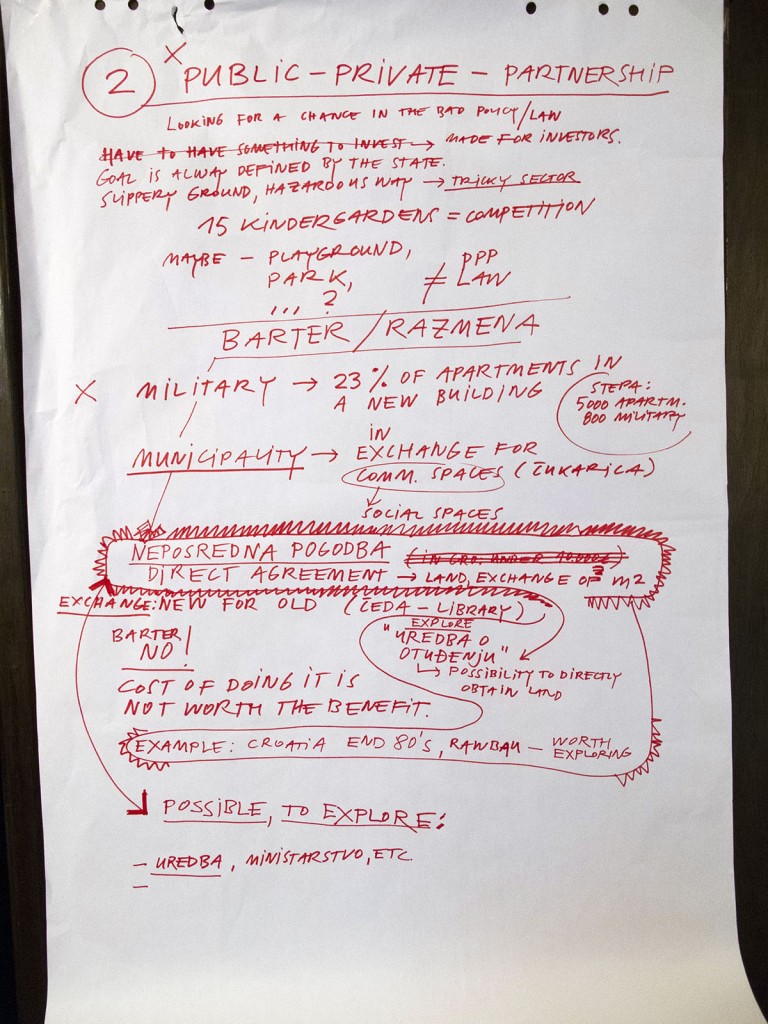 2 X PUBLIC - PRIVATE - PARTNERSHIP
LOOKING FOR A CHANGE IN THE BAD POLICY/LAW
HAVE TO HAVE SOMETHING TO INVEST → MADE FOR INVESTORS.
GOAL IS ALWAY DEFINED BY THE STATE.
SLIPPERY GROUND, HAZARDOUS WAY → TRICKY SECTOR
15 KINDERGARDENS = COMPETITION
MAYBE - PLAYGROUND,
PARK,
... ?
≠ PPP
LAW
BARTER / RAZMENA
X MILITARY → 23 % OF APARTMENTS IN
A NEW BUILDING
STEPA:
5000 APARTM.
800 MILITARY
IN
MUNICIPALITY → EXCHANGE FOR
COMM. SPACES (ČUKARICA)
SOCIAL SPACES
NEPOSREDNA POGODBA
DIRECT AGREEMENT → LAND, EXCHANGE OF m2
EXCHANGE: NEW FOR OLD (ČEDA - LIBRARY)
BARTER
NO!
EXPLORE
"UREDBA O
OTUĐENJU"
↳ POSSIBILITY TO DIRECTLY
OBTAIN LAND
COST OF DOING IT IS
NOT WORTH THE BENEFIT.
EXAMPLE: CROATIA END 80'S, RAWBAU - WORTH
EXPLORING
POSSIBLE, TO EXPLORE:
- UREDBA, MINISTARSTVO, ETC.
-